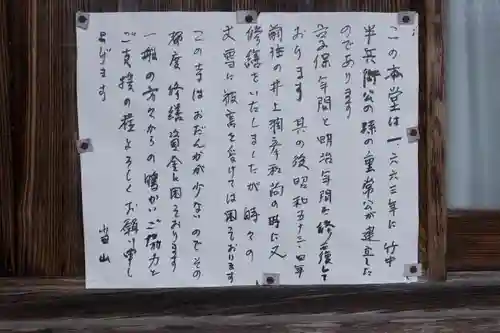 この本堂は一、六六三年に竹中
半兵衛公の孫の重常公が建立した
のであります
享保年間と明治年間に修復して
おります 其の後昭和五十三・四年
前住の井上 和尚の時に又
修繕をいたしましたが 時々の
大雪に被害を受けては困っております
この寺はおだんかが少ないのでその
都度修繕資金に困っております
一般の方々からの暖かいご協力と
ご支援の程よろしくお願い申し
上げます
当山